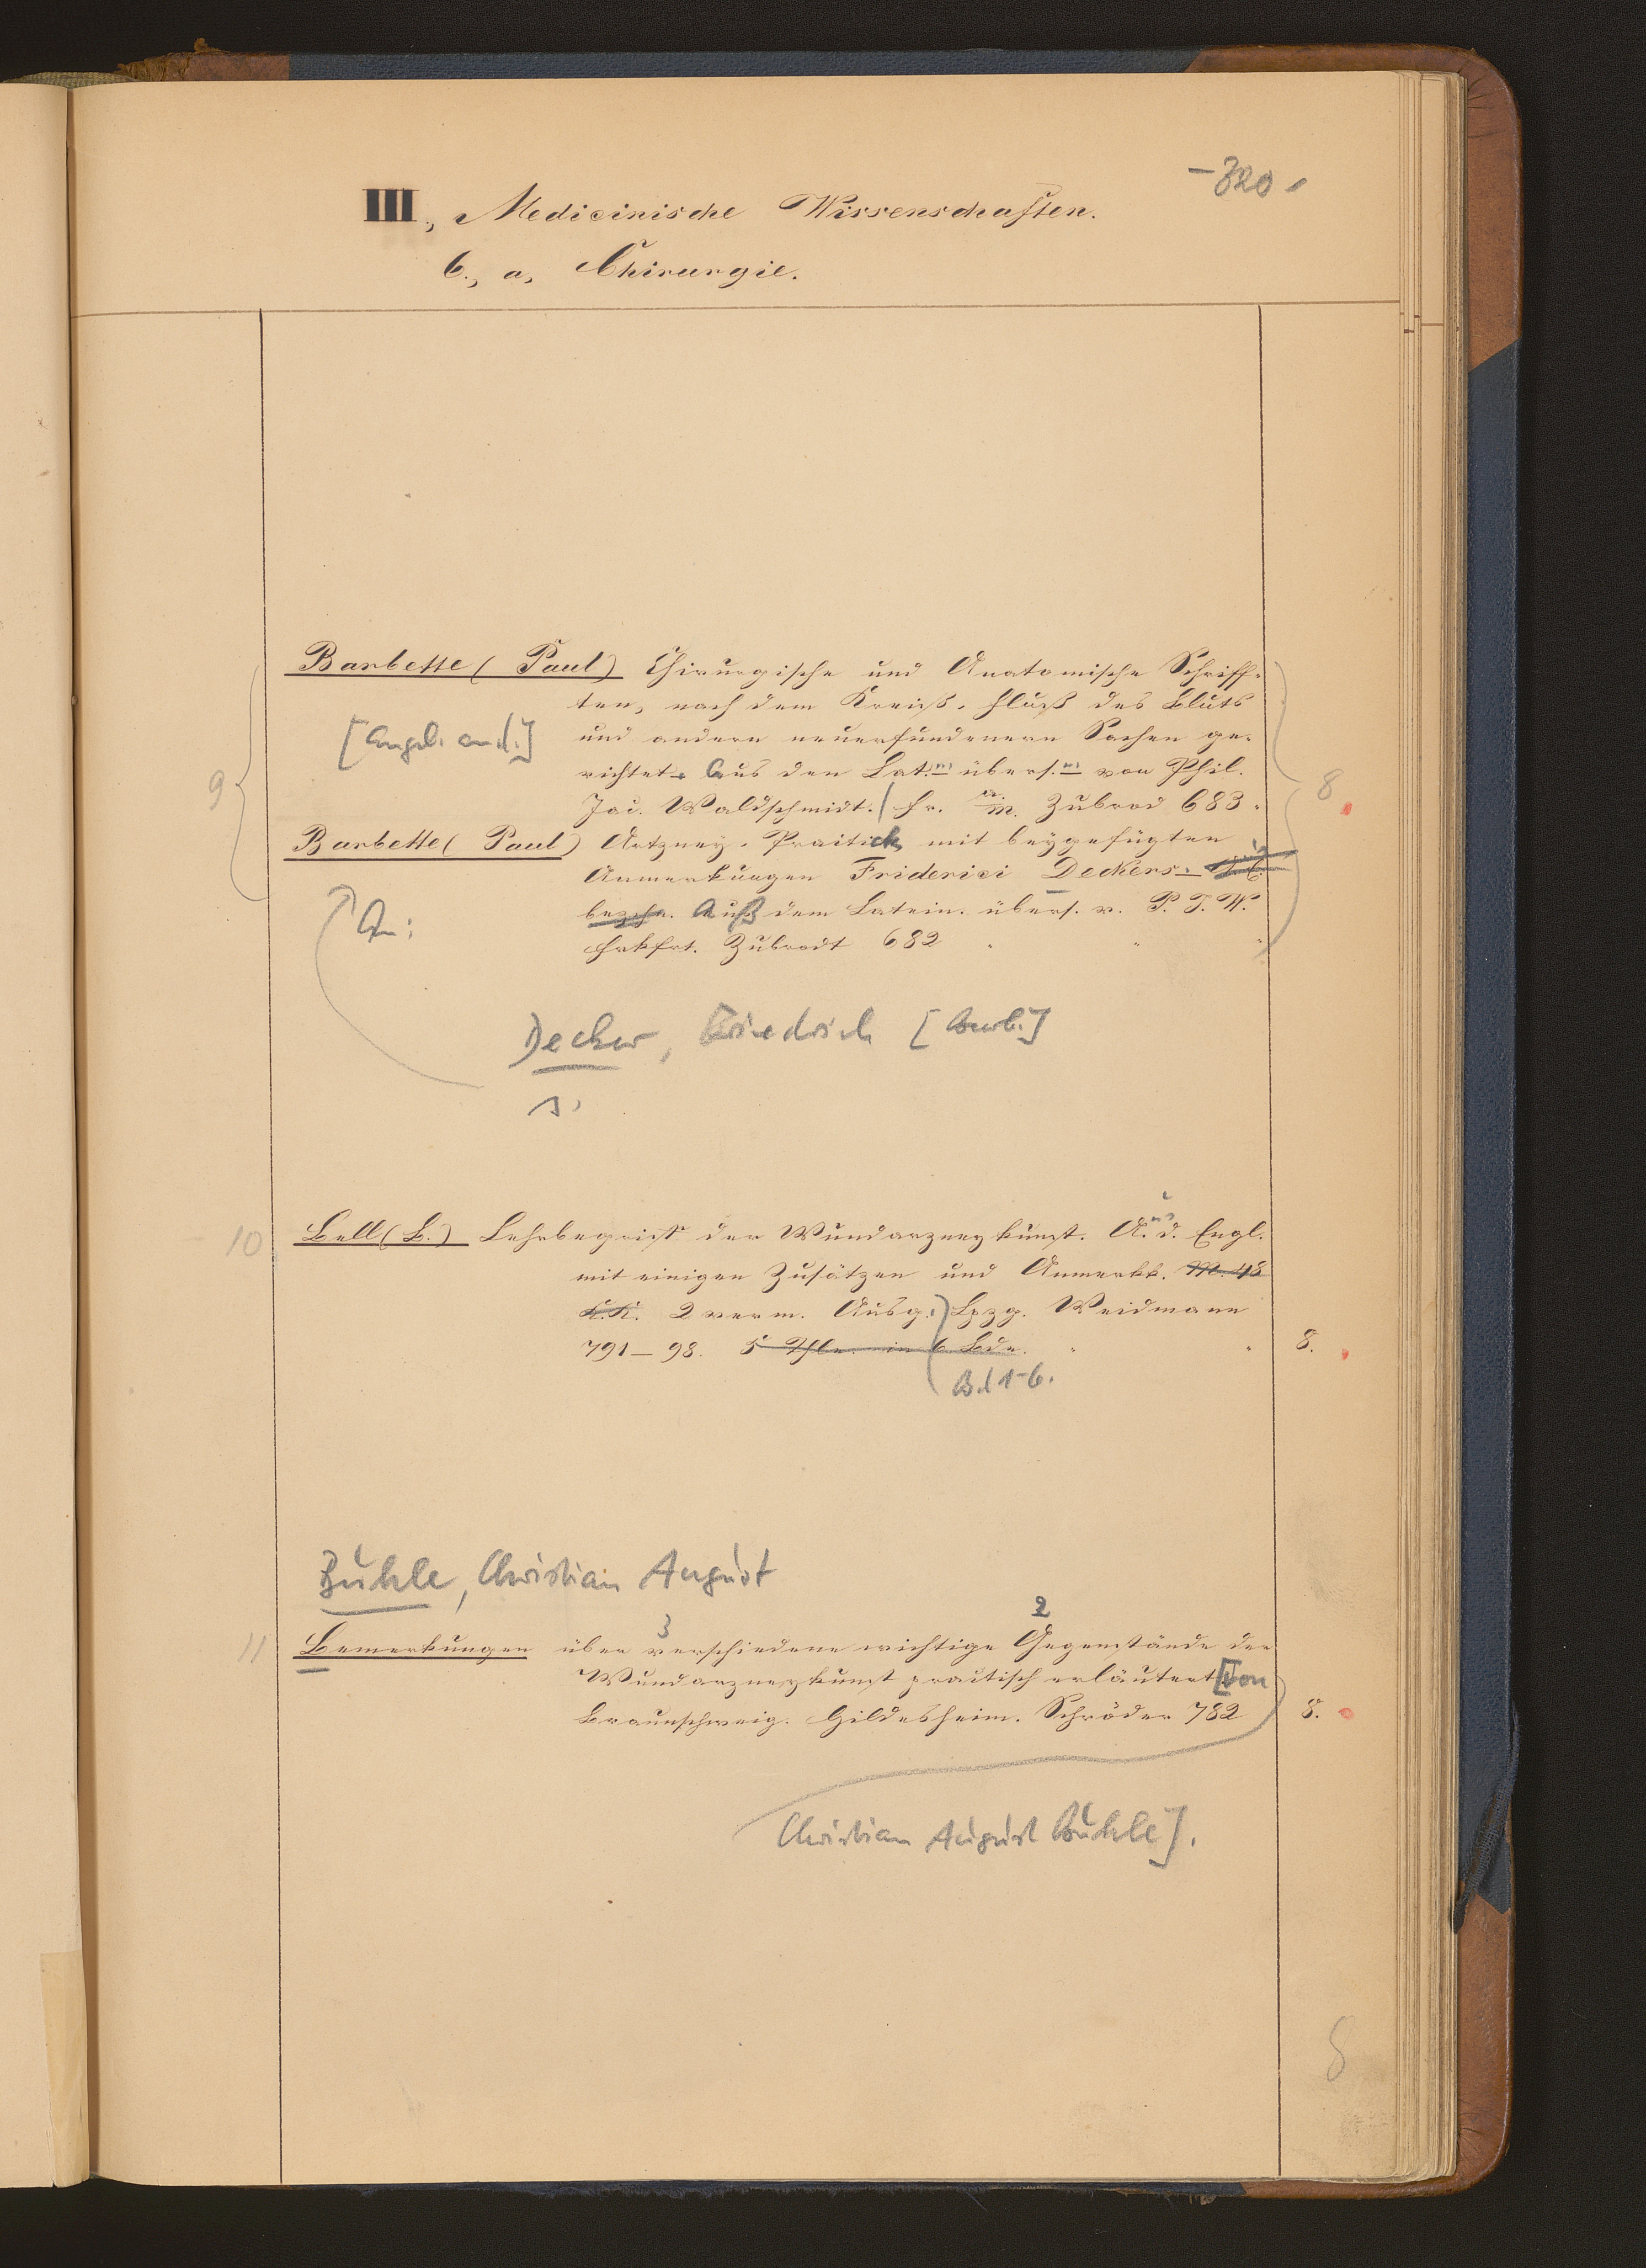 - 320.
III., Medicinische Wissenschaften.
6., a, Chirurgie.
Barbette (Paul) Chirurgische und Anatomische Schriff-
ten, nach dem Kreiß-Fluß des Bluts
[Angeb. an d.] und andern neuerfundenern Sachen ge-
richtet. Aus den Lat.n übers.n von Phil.
9
Jac. Waldschmidt. Fr. a. M. Zubrod 683.
8
Barbette (Paul) Artzney-Practick mit beygefügten
Anmerkungen Friderici Deckers.
An:
Auß dem Latein. übers. v. P. J. W.
Frkfrt. Zubrodt 682
Decker, Friedrich [Bearb.]
s.
10 Bell (B.) Lehrbegriff der Wundarzneykunst. Aus d. Engl.
mit einigen Zusätzen und Anmerkk. M. 48
K.K. 2 verm. Ausg. Lpzg. Weidmann
791-98. 5 Thle. in 6 Bde. 8.
Bd 1-6.
Buhle, Christian August
3 2
11 Bemerkungen über verschiedene wichtige Gegenstände der
Wundarzneykunst practisch erläutert [von
Braunschweig. Hildesheim. Schröder 782 8.
Christian August Buhle].
8